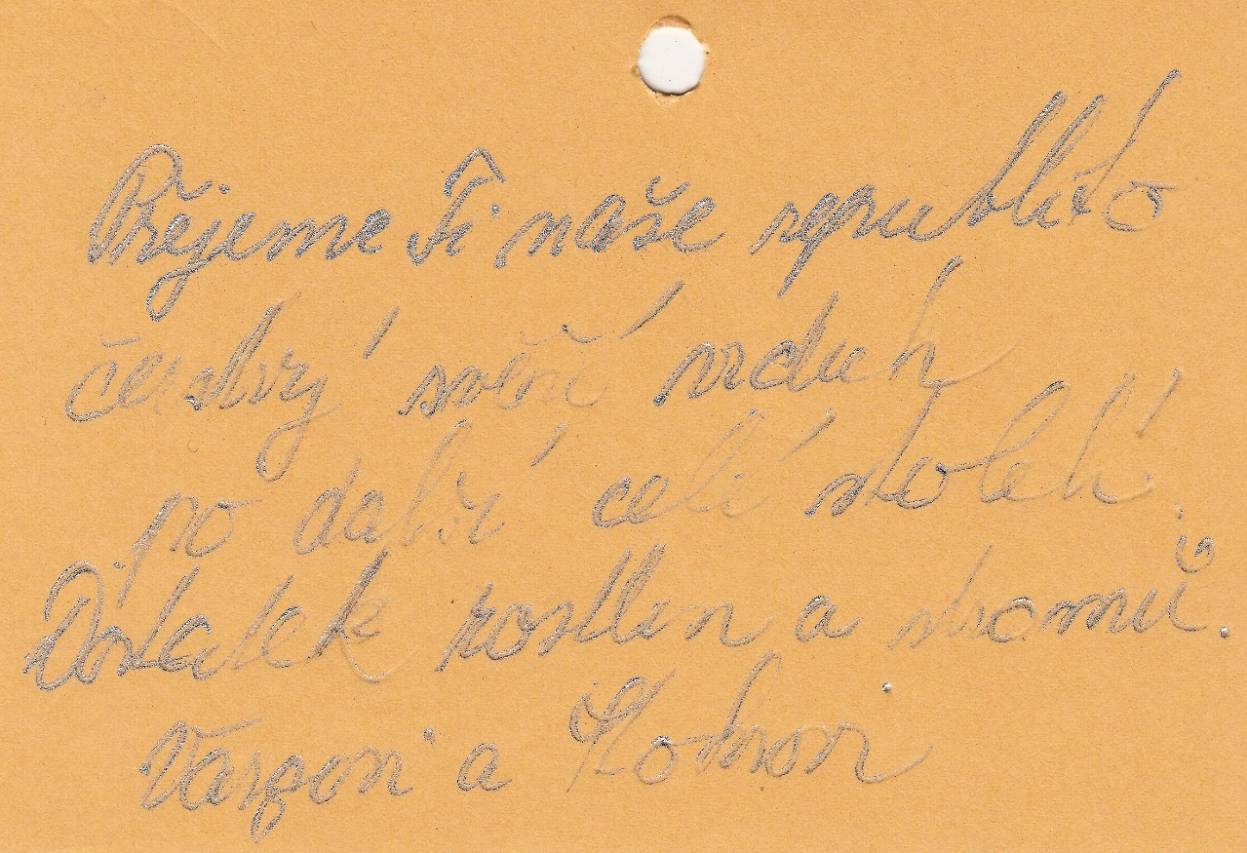 Přejeme Ti naše republiko
čerstvý svěží vzduch
po další celé století.
Dostatek rostlin a stromů.
a